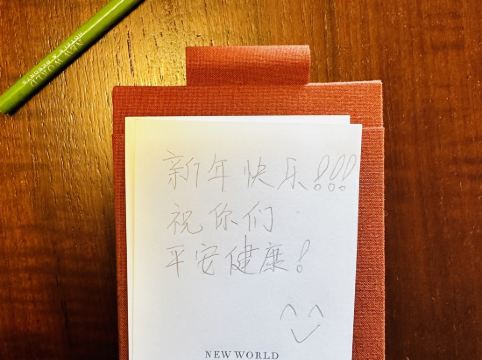 新年快乐!!!
祝你们
平安健康!
NEW WORLD